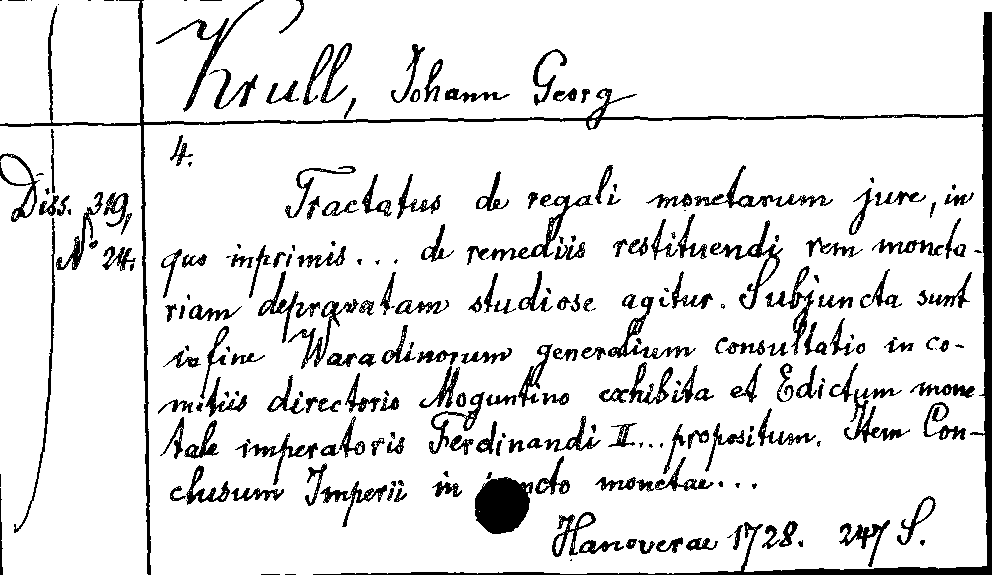 Krull, Johann Georg
4.
Diss. 319,
No 24.
Tractatus de regali monetarum jure, in
quo inprimis... de remediis restituendi rem moneta-
riam depravatam studiose agitur. Subjuncta sunt
in fine Waradinorum generalium consultatio in co-
mitiis directorio Moguntino exhibita et Edictum mone-
tale imperatoris Ferdinandi II... propositum. Item Con-
clusum Imperii in monetae...
Hanoverae 1728. 247 S.